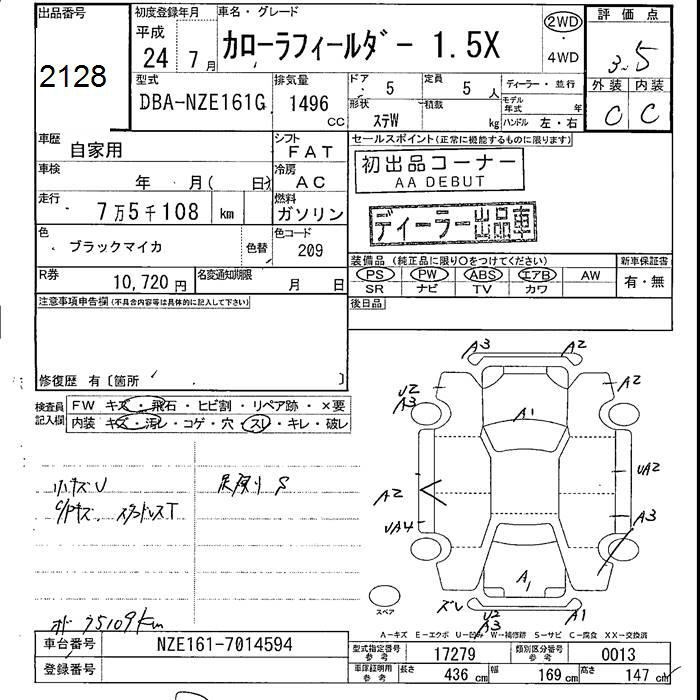 出品番号 初度登録年月 車名・グレード 評価点
2128
平成
24 7月 カローラフィールダー 1.5X 2WD 4WD 3.5
型式 排気量 ドア 定員 ディーラー・並行 外装 内装
DBA-NZE161G 1496 CC 5 5人 モデル年式 年 C C
形状 ステW 積載 kg ハンドル 左・右
車歴 自家用 シフト FAT セールスポイント(正常に機能するものに限ります)
車検 年 月( 日) 冷房 AC 初出品コーナー
AA DEBUT
走行 7万5千108 km 燃料 ガソリン ディーラー出品車
色 ブラックマイカ 色替 色コード 209
装備品 (純正品に限り○をつけてください) 新車保証書
PS PW ABS エアB AW 有・無
SR ナビ TV カワ
R券 10,720円 名変通知期限 月 日
注意事項申告欄(不具合内容等は具体的に記入して下さい) 後日品
修復歴 有〔箇所 〕
検査員記入欄 FW キズ・飛石・ヒビ割・リペア跡・×要
内装 キズ・汚レ・コゲ・穴・スレ・キレ・破レ
小キズU
S
75109Km
A3 A2
U2
A3 A2
A1
A2 UA2
UA4 A3
A1
スペア ズレ U2
A3 A1
A-キズ E-エクボ U-凹み W-補修跡 S-サビ C-腐食 XX-交換済
車台番号 NZE161-7014594 型式指定番号 参考 17279 類別区分番号 参考 0013
登録番号 車保証明用 参考 長さ 436 cm 幅 169 cm 高さ 147 cm